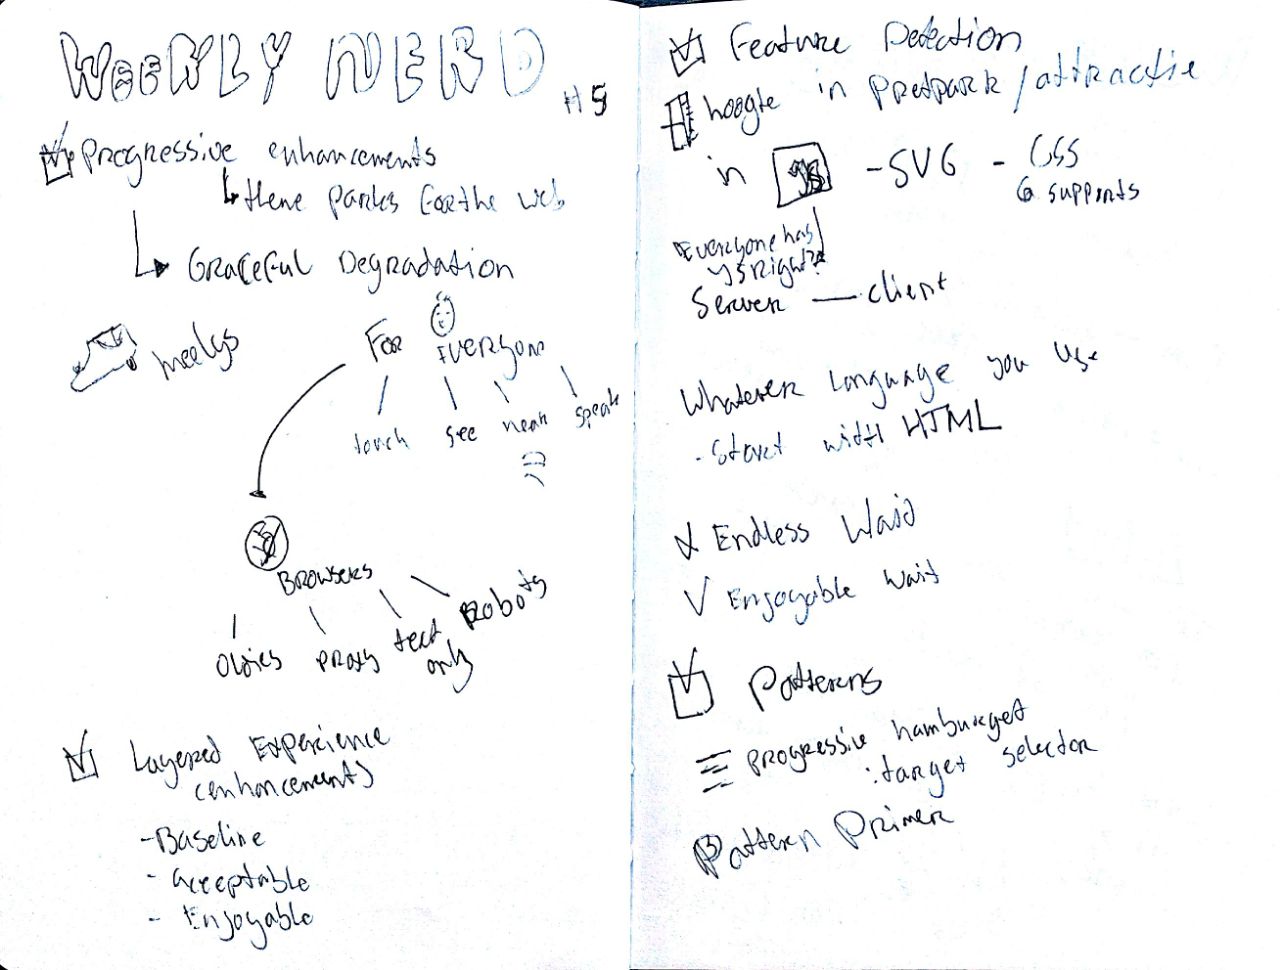 WEEKLY NERD
#5
Progressive enhancements
Theme Parks for the web
Graceful Degradation
heelys
For Everyone
touch see hear speak
Browsers
Oldies proxy text only Robots
Layered Experience
(enhancements)
-Baseline
- acceptable
- Enjoyable
Feature Detection
hoogte in pretpark/attractie
in JS - SVG - CSS
@ supports
Everyone has
JS right?
Server — client
Whatever language you use
- Start with HTML
Endless Waid
Enjoyable wait
Patterns
progressive hamburger
:target selector
Pattern Primer